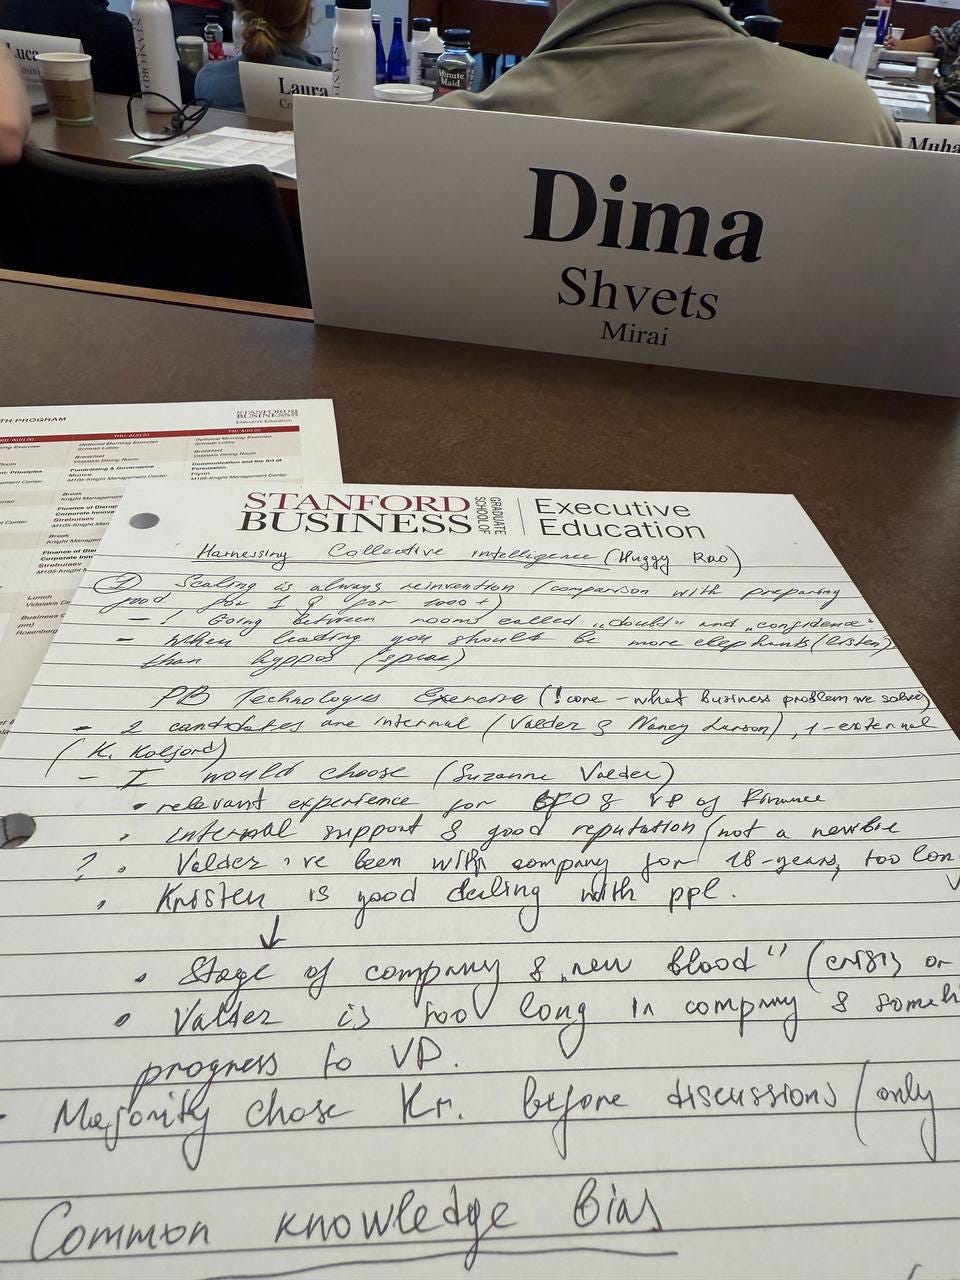 Luca
Laura
Co
Minute
Maid
Muha
Dima
Shvets
Mirai
TH PROGRAM
STANFORD
BUSINESS
Executive Education
THU, AUG 21
Optional Morning Exercise
Schwab Lobby
Breakfast
Vidalakis Dining Room
Fundraising & Governance
M105-Knight Management Center
Break
Knight Management
Finance of Disrup
Corporate Innov
Strebulaev
M105-Knight M
Break
Knight Managem
Finance of Dis
Corporate Inn
Strebulaev
M105-Knight
Lunch
Vidalakis D
Business
pm)
Rosenberg
Optional Morning Exercise
Schwab Lobby
Breakfast
Vidalakis Dining Room
Communication and the Art of
Persuasion
Flynn
M105-Knight Management Center
STANFORD GRADUATE
BUSINESS SCHOOL OF
Executive
Education
Harnessing Collective intelligence (Huggy Rao)
① Scaling is always reinvention (comparison with preparing
food for 1 & for 1000+)
- ! Going between rooms called „doubt" and „confidence"
- When leading you should be more elephants (listen)
than hyppos (speak)
PB Technologies Exercise (! core - what business problem we solve)
- 2 candidates are internal (Valdez & Nancy Larson), 1 - external
(K. Koljord)
- I would choose (Suzanne Valdez)
• relevant experience for CFO & VP of Finance
• internal support & good reputation (not a newbie
? • Valdez 've been with company for 18-years, too lon
• Kristen is good dealing with ppl.
↓
• Stage of company & „new blood" (crisis or
• Valdez is too long in company & someh
progress to VP.
- Majority chose Kr. before discussions (only
Common knowledge bias